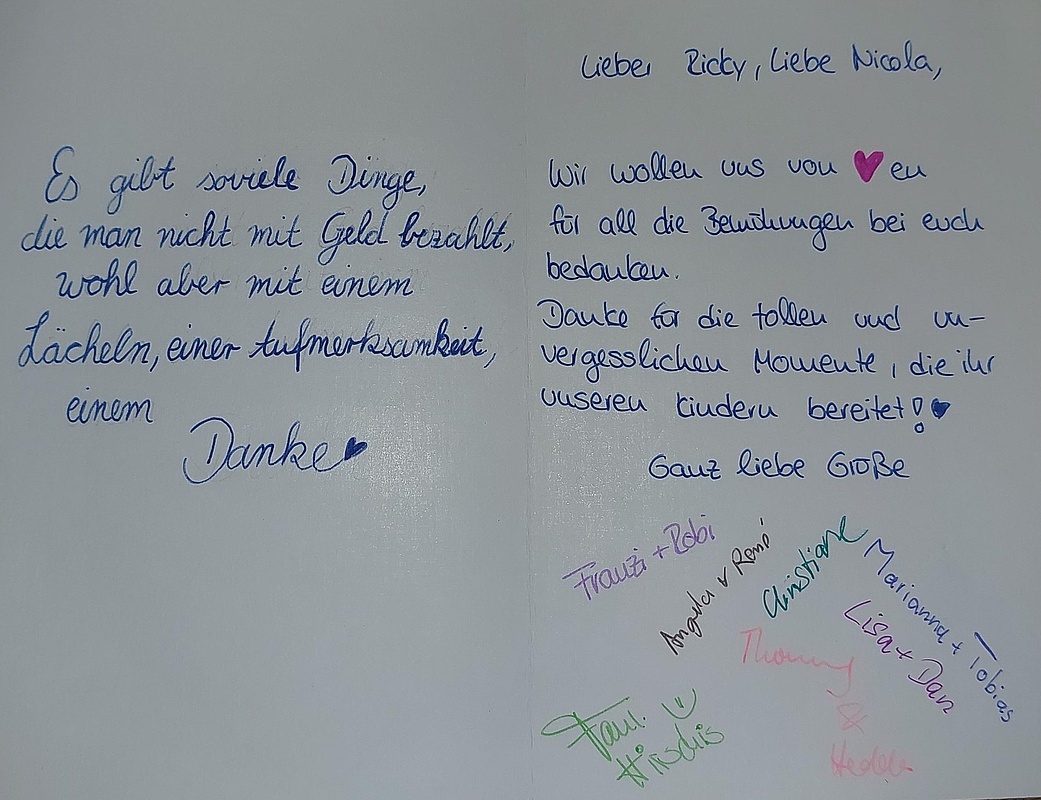 Es gibt soviele Dinge,
die man nicht mit Geld bezahlt,
wohl aber mit einem
Lächeln, einer Aufmerksamkeit,
einem
Danke ♥
Lieber Ricky, Liebe Nicola,
Wir wollen uns von ♥ en
für all die Bemühungen bei euch
bedanken.
Danke für die tollen und un-
vergesslichen Momente, die ihr
unseren Kindern bereitet! ♥
Ganz liebe Grüße
Franzi + Robi
Angela + René
Christiane
Marianna + Tobias
Lisa + Dan
Thommy
&
Fam. ☺